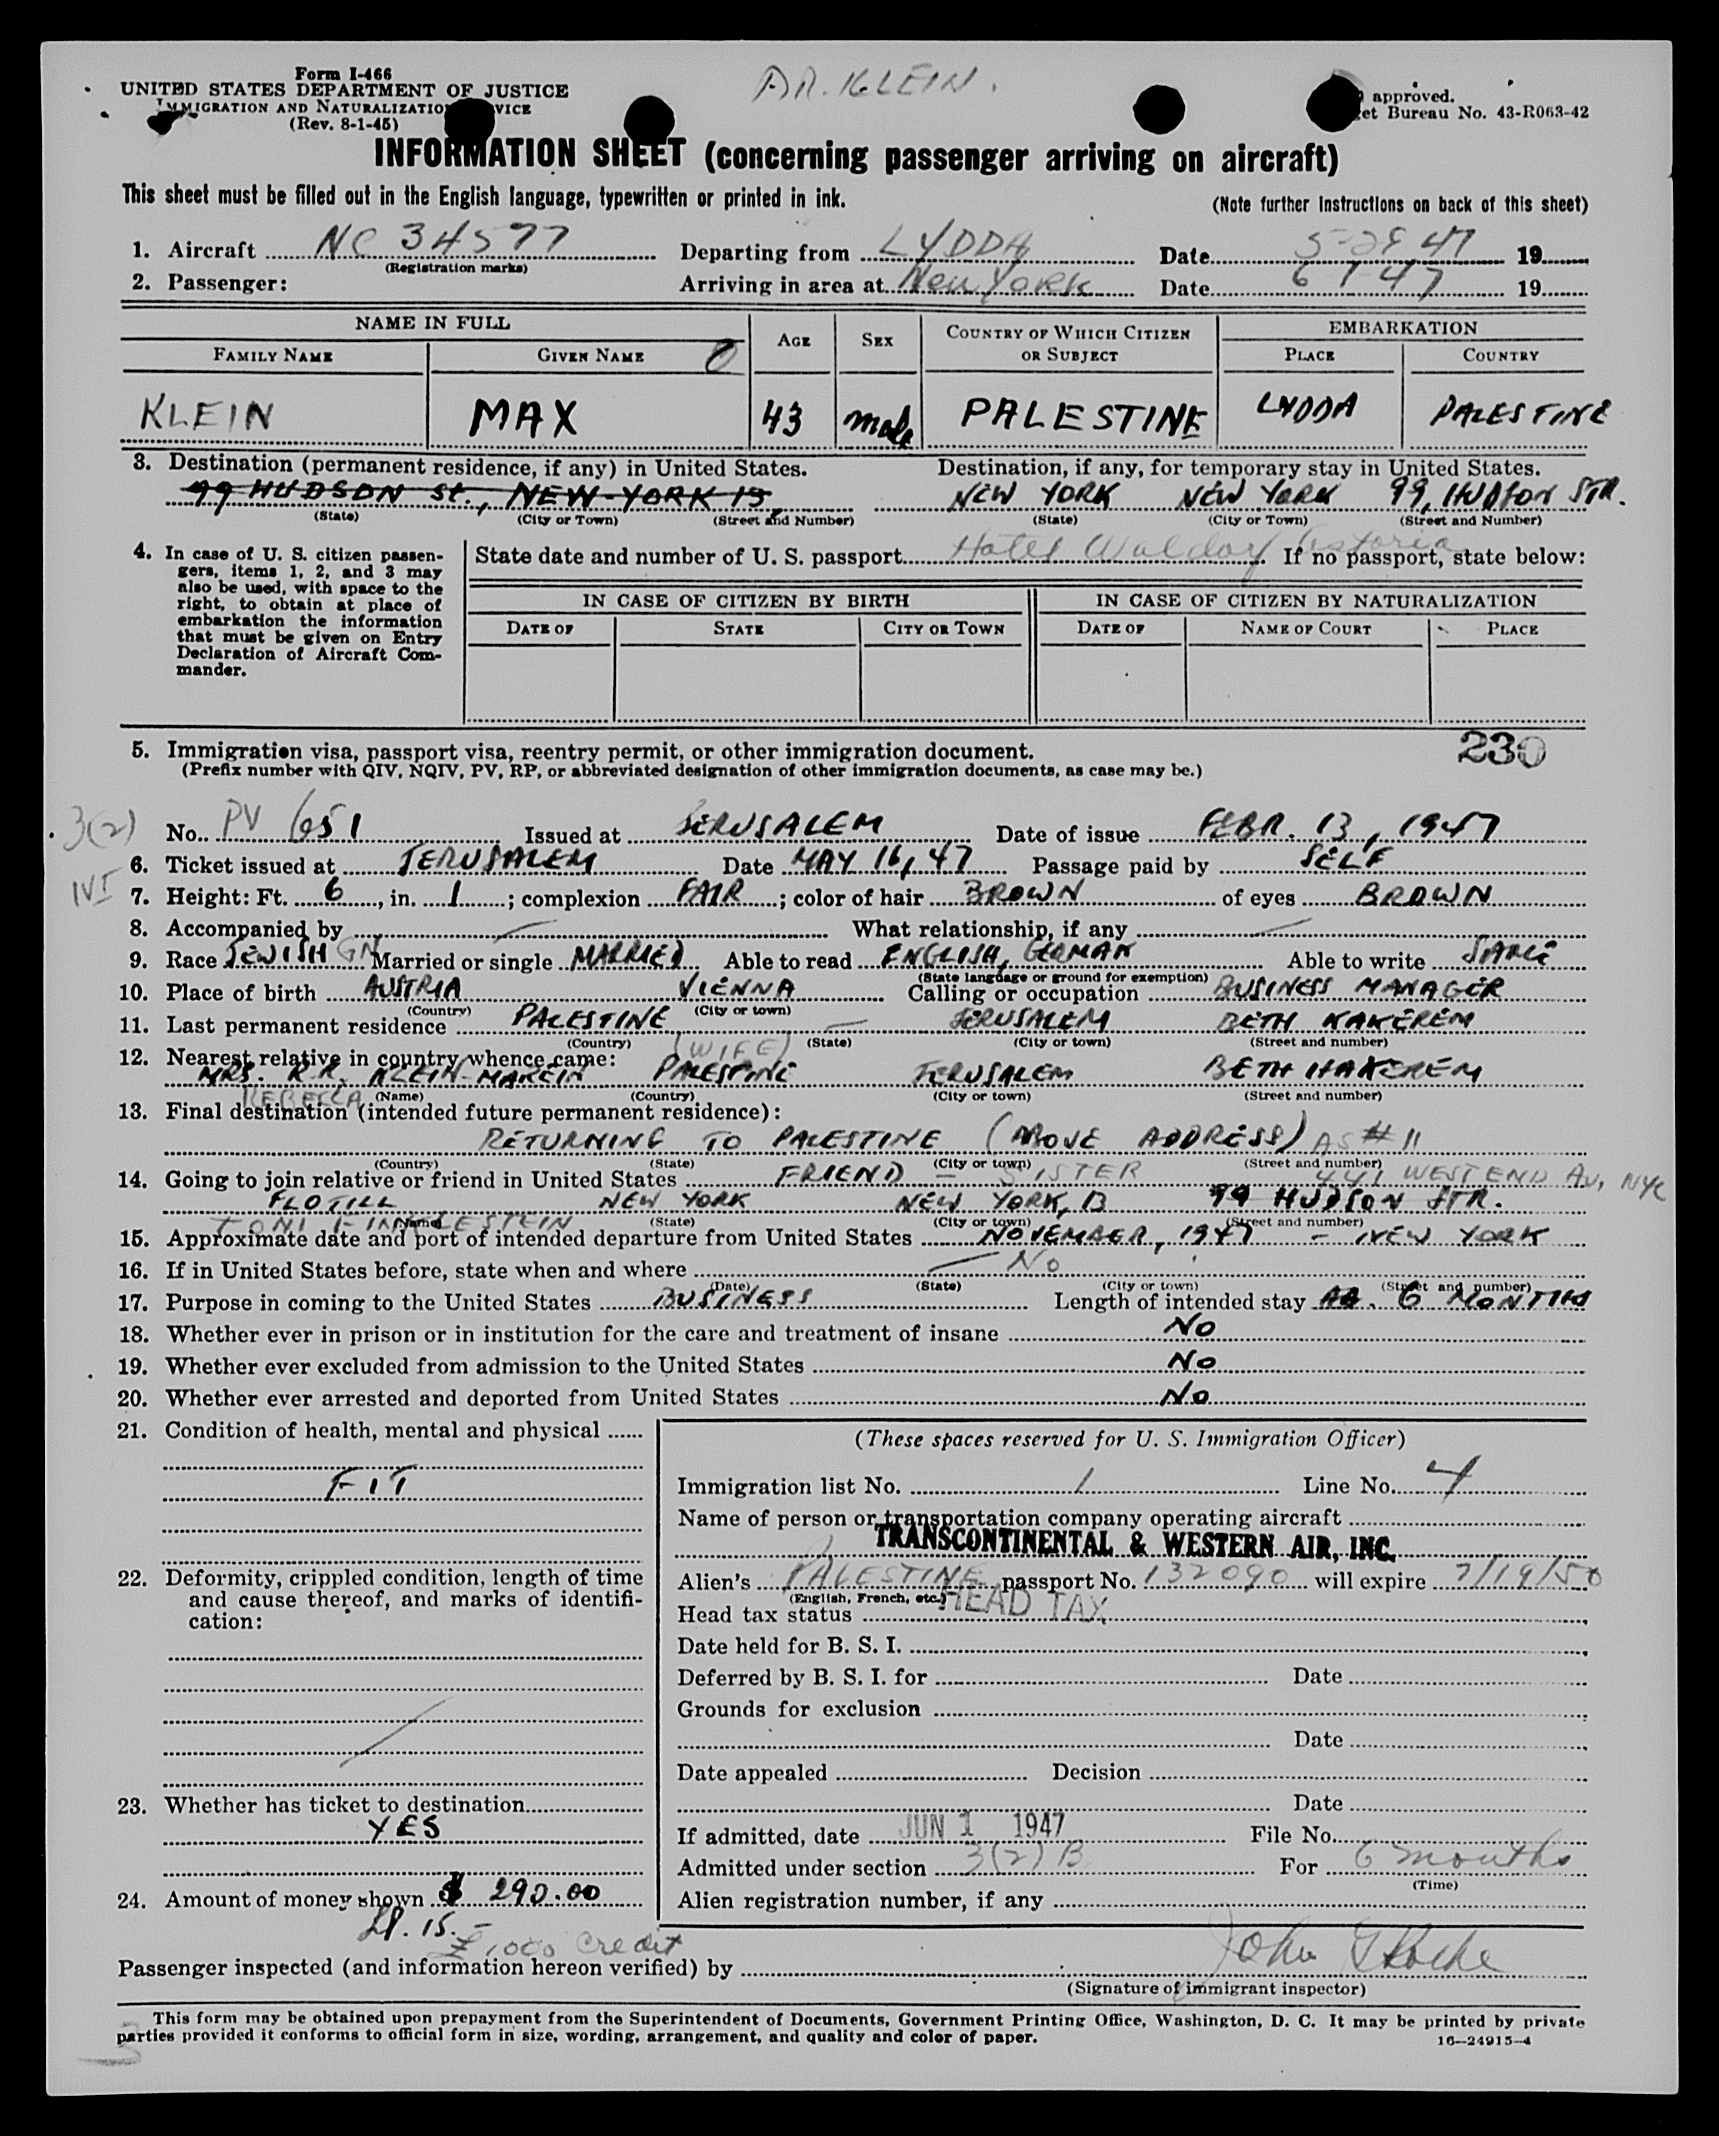 Form I-466
UNITED STATES DEPARTMENT OF JUSTICE
DR. KLEIN.
IMMIGRATION AND NATURALIZATION SERVICE
approved.
(Rev. 8-1-45)
et Bureau No. 43-R063-42
INFORMATION SHEET (concerning passenger arriving on aircraft)
This sheet must be filled out in the English language, typewritten or printed in ink. (Note further instructions on back of this sheet)
1. Aircraft NC 34577 Departing from LYDDA Date 5-28 47 19
(Registration marks)
2. Passenger: Arriving in area at New York Date 6 1-47 19
NAME IN FULL AGE SEX COUNTRY OF WHICH CITIZEN OR SUBJECT EMBARKATION
FAMILY NAME GIVEN NAME PLACE COUNTRY
KLEIN MAX 43 male PALESTINE LYDDA PALESTINE
3. Destination (permanent residence, if any) in United States. Destination, if any, for temporary stay in United States.
99 HUDSON St., NEW-YORK 13 NEW YORK NEW YORK 99, HUDSON STR.
(State) (City or Town) (Street and Number) (State) (City or Town) (Street and Number)
4. In case of U. S. citizen passengers, items 1, 2, and 3 may also be used, with space to the right, to obtain at place of embarkation the information that must be given on Entry Declaration of Aircraft Commander.
State date and number of U. S. passport Hotel Waldorf Astoria If no passport, state below:
IN CASE OF CITIZEN BY BIRTH IN CASE OF CITIZEN BY NATURALIZATION
DATE OF STATE CITY OR TOWN DATE OF NAME OF COURT PLACE
230
5. Immigration visa, passport visa, reentry permit, or other immigration document.
(Prefix number with QIV, NQIV, PV, RP, or abbreviated designation of other immigration documents, as case may be.)
3(2) No. PV 651 Issued at JERUSALEM Date of issue FEBR. 13, 1947
6. Ticket issued at JERUSALEM Date MAY 16, 47 Passage paid by SELF
7. Height: Ft. 6, in. 1; complexion FAIR; color of hair BROWN of eyes BROWN
8. Accompanied by — What relationship, if any —
9. Race JEWISH GN Married or single MARRIED Able to read ENGLISH, GERMAN Able to write SAME
(State language or ground for exemption)
10. Place of birth AUSTRIA VIENNA Calling or occupation BUSINESS MANAGER
(Country) (City or town)
11. Last permanent residence PALESTINE — JERUSALEM BETH HAKEREM
(Country) (State) (City or town) (Street and number)
12. Nearest relative in country whence came: (WIFE)
MRS. R.R. KLEIN-MARCIN PALESTINE JERUSALEM BETH HAKEREM
REBECCA (Name) (Country) (City or town) (Street and number)
13. Final destination (intended future permanent residence):
RETURNING TO PALESTINE (ABOVE ADDRESS) AS #11
(Country) (State) (City or town) (Street and number)
14. Going to join relative or friend in United States FRIEND - SISTER 441 WEST END AV, NYC
FLOTILL NEW YORK NEW YORK, 13 99 HUDSON STR.
TONI (Name) (State) (City or town) (Street and number)
15. Approximate date and port of intended departure from United States NOVEMBER, 1947 - NEW YORK
16. If in United States before, state when and where — No
(Date) (State) (City or town) (Street and number)
17. Purpose in coming to the United States BUSINESS Length of intended stay AB. 6 MONTHS
18. Whether ever in prison or in institution for the care and treatment of insane No
19. Whether ever excluded from admission to the United States No
20. Whether ever arrested and deported from United States No
21. Condition of health, mental and physical
FIT
22. Deformity, crippled condition, length of time and cause thereof, and marks of identification:
23. Whether has ticket to destination
YES
24. Amount of money shown $ 290.00
LP. 15.-
£1,000 credit
(These spaces reserved for U. S. Immigration Officer)
Immigration list No. 1 Line No. 4
Name of person or transportation company operating aircraft
TRANSCONTINENTAL & WESTERN AIR, INC.
Alien's PALESTINE passport No. 132090 will expire 7/19/50
(English, French, etc.)
Head tax status HEAD TAX
Date held for B. S. I.
Deferred by B. S. I. for Date
Grounds for exclusion
Date
Date appealed Decision
Date
If admitted, date JUN 1 1947 File No.
Admitted under section 3(2) B For 6 months
(Time)
Alien registration number, if any
Passenger inspected (and information hereon verified) by John
(Signature of immigrant inspector)
This form may be obtained upon prepayment from the Superintendent of Documents, Government Printing Office, Washington, D. C. It may be printed by private
parties provided it conforms to official form in size, wording, arrangement, and quality and color of paper. 16—24915-4